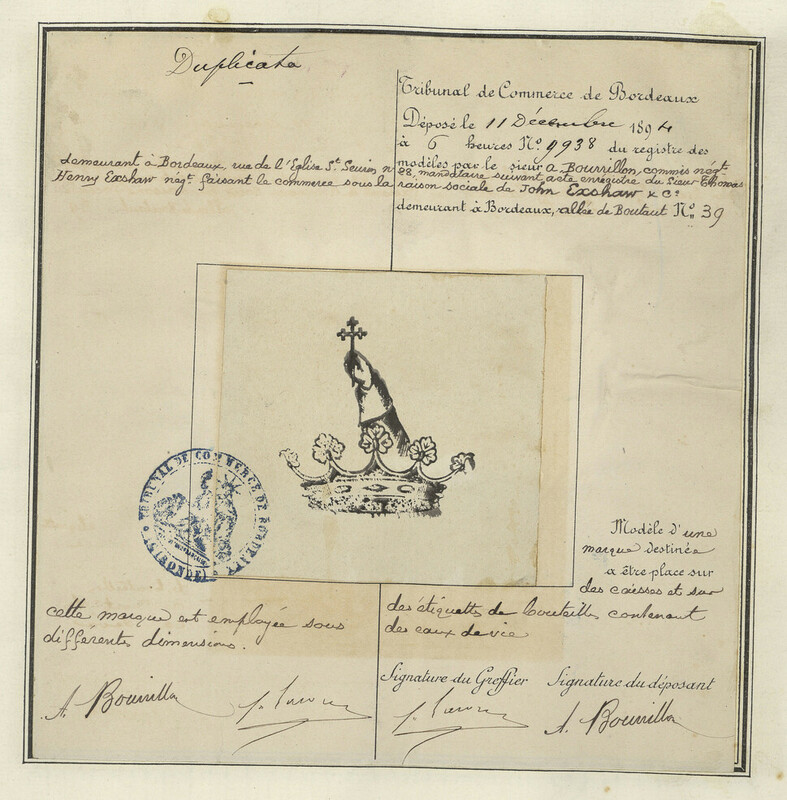 Duplicata
Tribunal de Commerce de Bordeaux
Déposé le 11 Décembre 1894
à 6 heures Nº 9938 du registre des
modèles par le sieur A Bourrillon, commis négt.
demeurant à Bordeaux, rue de l'Eglise St Seurin nº 28, mandataire suivant acte enregistré du Sieur Thomas
Henry Exshaw négt. faisant le commerce sous la raison sociale de John Exshaw & Cº
demeurant à Bordeaux, allée de Boutaut Nº 39
TRIBUNAL DE COMMERCE DE BORDEAUX
(GIRONDE)
Modèle d'une
marque destinée
a être place sur
des caisses et sur
des étiquetts de bouteills contenant
des eaux de vie
cette marque est employée sous
différents dimensions.
Signature du Greffier Signature du déposant
A. Bourrillon
A. Bourrillon